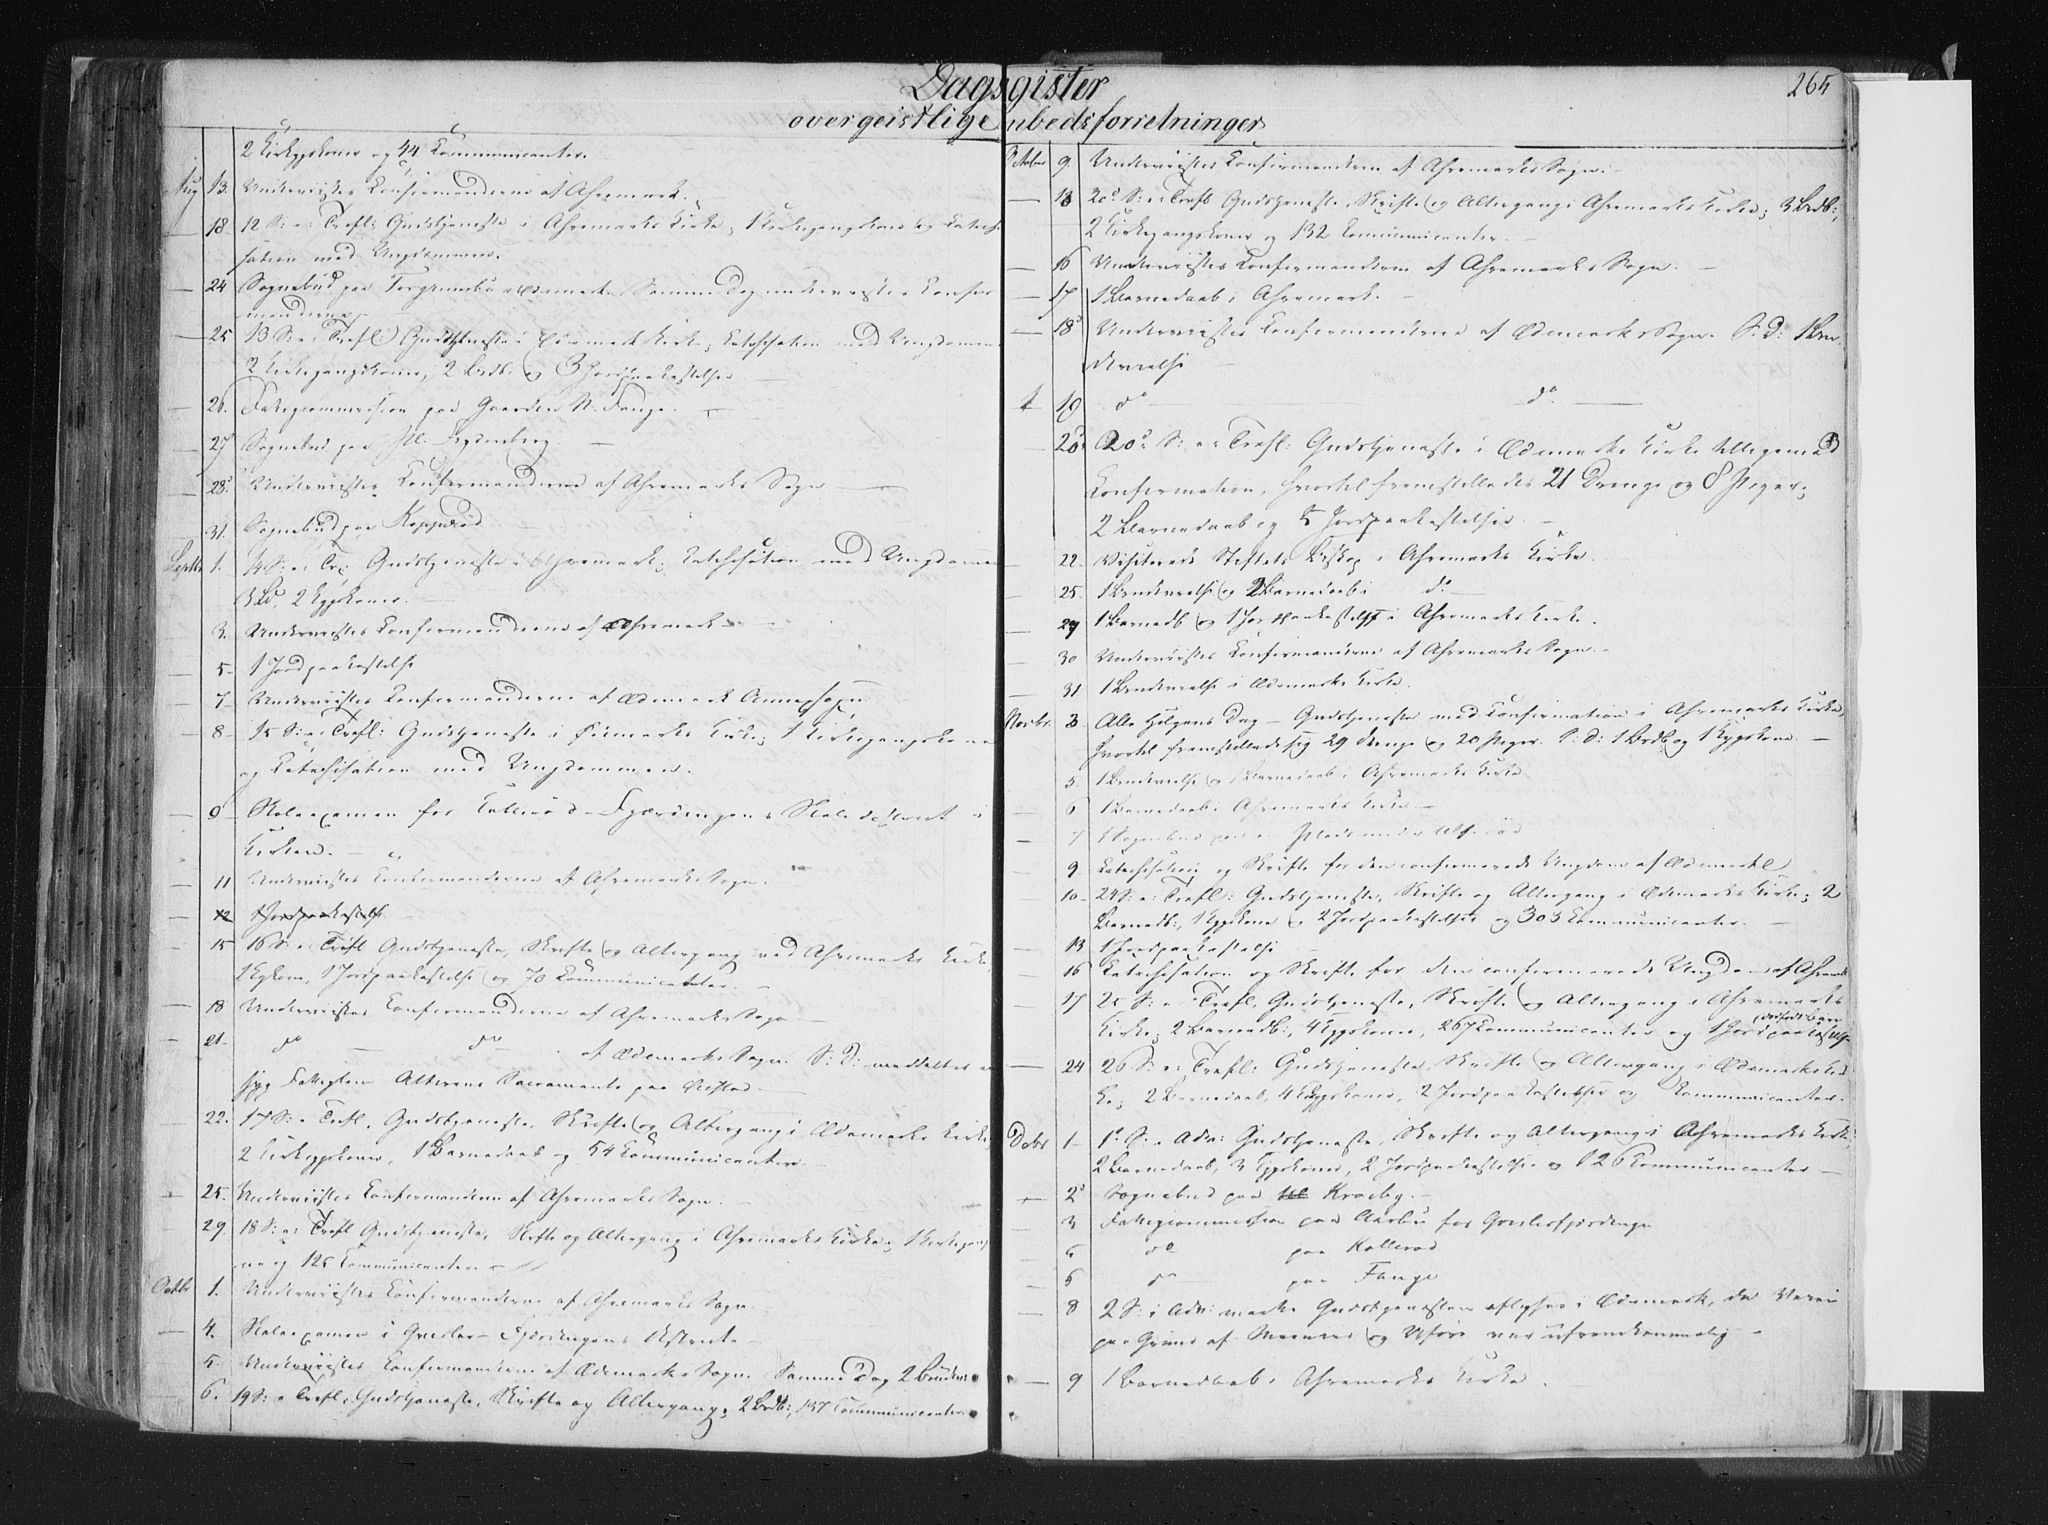 Dagsgister
over geistlige mbedsforretninger
265
2 Kirkegskoner og 44 Communicanter.
Aug 13. Underviistes Confirmanderne af Ahremark.
18 12 S: e: Trefl: Gudstjeneste i Ahremarks Kirke, 1 Kirkegangskone og Catechi-
sation med Ungdommen.
24 Sognebud paa Samme Dag underviistes Confir
manderne
25 13 S: e: Trefl: Gudstjeneste i Kirke, Catechisation med Ungdommen
2 Kirkegangskoner, 2 Brdb: og 3 Jordpaakastelser
26. Fattigcommission paa Gaarden N. Fange.
27 Sognebud paa
28. Underviistes Confirmanderne af Ahremarks Sogn
31. Sognebud paa
Septbr 1. 14 S: e: Tr: Gudstjeneste i Ahremark; Catechisation med Ungdommen
3 Bd, 2 Kgskoner.
3. Underviistes Confirmanderne af Ahremark
5. 1 Jordpaakastelse
7. Underviistes Confirmanderne af Ødemark Annexsogn
8. 15 S: e: Trefl: Gudstjeneste i Ødemarks Kirke; 1 Kirkegangskone
og Catechisation med Ungdommen.
9 Skoleexamen for Kallerød-Fjerdingens Skoledistrict i
Kirken.
11 Underviistes Confirmanderne af Ahremarks Sogn.
12 1 Jordpaakastelse
15 16 S: e: Trefl Gudstjeneste, Skrifte og Altergang ved Ahremarks Kirke,
1 Kgkone, 1 Jordpaakastelse og 70 Communicanter.
18 Underviistes Confirmanderne af Ahremarks Sogn
21. do do af Ødemarks Sogn S: D: meddeltes en
syg Fattiglem Alterens Sacramente paa
22. 17 S: e Trefl. Gudstjeneste, Skrifte og Altergang i Ødemarks Kirke;
2 Kirkegskoner, 1 Barnedaab og 54 Communicanter.
25. Underviistes Confirmanderne af Ahremarks Sogn.
29. 18 S: e: Trefl Gudstjeneste, Skrifte og Altergang i Ahremarks Kirke; 1 Kirkegangsko
ne og 125 Communicanter
Octbr 1. Underviistes Confirmanderne af Ahremarks Sogn
4. Skoleexamen i Fjerdingens
5. Underviistes Confirmanderne af Ødemarks Sogn. Samme Dag 2
6. 19 S: e Trefl: Gudstjeneste, Skrifte og Altergang; 2 Brdb:, 137 Communicanter
Octobr 9. Underviistes Confirmanderne af Ahremarks Sogn.
13 20d S: e: Trefl Gudstjeneste, Skrifte og Altergang i Ahremarks Kirke; 3 Brdb:,
2 Kirkegangskoner og 132 Communicanter.
16 Underviistes Confirmanderne af Ahremarks Sogn.
17 1 Barnedaab i Ahremark.
18 Underviistes Confirmanderne af Ødemarks Sogn. S: D: 1 Bru-
devielse
19 do do
20 20d S: e: Trefl: Gudstjeneste i Ødemarks Kirke tilligemed
Confirmation, hvortil fremstilledes 21 Drenge og 8 Piger;
2 Barnedaab og 5 Jordpaakastelser.
22. Visiterede Stiftets Biskop i Ahremarks Kirke.
25. 1 Brudevielse og 2 Barnedaab i do
29 1 Barnedb og 1 Jordpaakastelse i Ahremarks Kirke.
30 Underviistes Confirmanderne af Ahremarks Sogn.
31 1 Brudevielse i Ødemarks Kirke.
Novbr. 3 Alle Helgens Dag - Gudstjeneste med Confirmation i Ahremarks Kirke,
hvortil fremstillede sig 29 Drenge og 20 Piger. S: D: 1 Brdb og 1 Kgskone.
5. 1 Brudevielse og 1 Barnedaab i Ahremarks Kirke
6 1 Barnedaab i Ahremarks Kirke.
7 1 Sognebud paa en Plads under
9 Catechisation og Skrifte for den confirmerede Ungdom af Ødemark
10 24 S: e: Trefl: Gudstjeneste, Skrifte og Altergang i Ødemarks Kirke; 2
Barnedb:, 1 Kgskone, 2 Jordpaakastelser og 303 Communicanter.
13 1 Jordpaakastelse
16 Catechisation og Skrifte for den confirmerede Ungdom af Ahremark
17 25 S: e Trefl. Gudstjeneste, Skrifte og Altergang i Ahremarks
Kirke; 2 Barnedb:, 4 Kgskoner, 267 Communicanter og 1 Jordpaakastelse
dødfødt Barn
24 26 S: e: Trefl: Gudstjeneste, Skrifte og Altergang i Ødemarks Kir-
ke; 2 Barnedaab, 4 Kgskoner, 2 Jordpaakastelser og Communicanter.
Decbr 1 1d S: e Adv: Gudstjeneste, Skrifte og Altergang i Ahremarks Kirke;
2 Barnedaab, 3 Kgskoner, 2 Jordpaakastelser og 126 Communicanter
2d Sognebud paa Kroeby.
3 Fattigcommission paa Aarbu for
5 do paa Kollerød
6 do paa Fange
8 2 S: i Adv: maatte Gudstjenesten aflyses i Ødemark, da Veien
paa Grund af og Uføre var ufremkommelig
9 1 Barnedaab i Ahremarks Kirke.